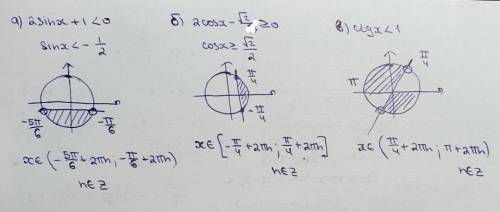 а) 2sinx + 1 < 0
sinx < - 1/2
-5π/6
-π/6
x∈ (-5π/6 + 2πn; -π/6 + 2πn)
n∈Z
б) 2cosx - √2 ≥ 0
cosx ≥ √2/2
π/4
-π/4
x∈ [-π/4 + 2πn; π/4 + 2πn]
n∈Z
в) ctgx < 1
π/4
π
x∈ (π/4 + 2πn; π + 2πn)
n∈Z